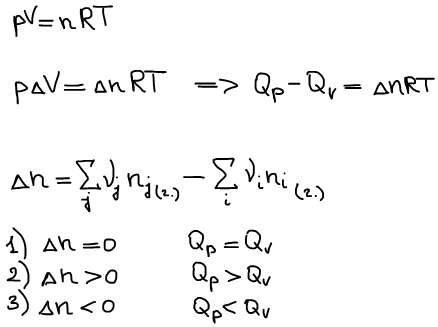 pV = nRT
pΔV = ΔnRT => Qp - Qv = ΔnRT
Δn = Σj νj nj(г.) - Σi νi ni(г.)
1) Δn = 0 Qp = Qv
2) Δn > 0 Qp > Qv
3) Δn < 0 Qp < Qv